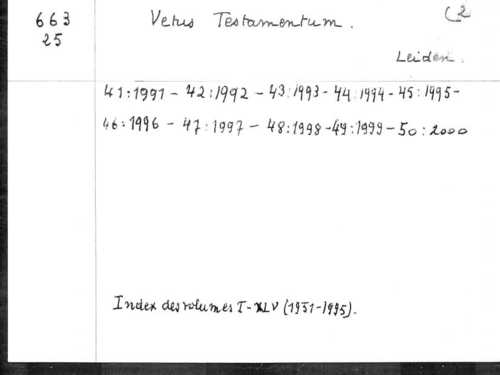 663
25
Vetus Testamentum.
(2
Leiden.
41:1991 - 42:1992 - 43:1993 - 44:1994 - 45:1995 -
46:1996 - 47:1997 - 48:1998 - 49:1999 - 50:2000
Index des volumes I-XLV (1951-1995).